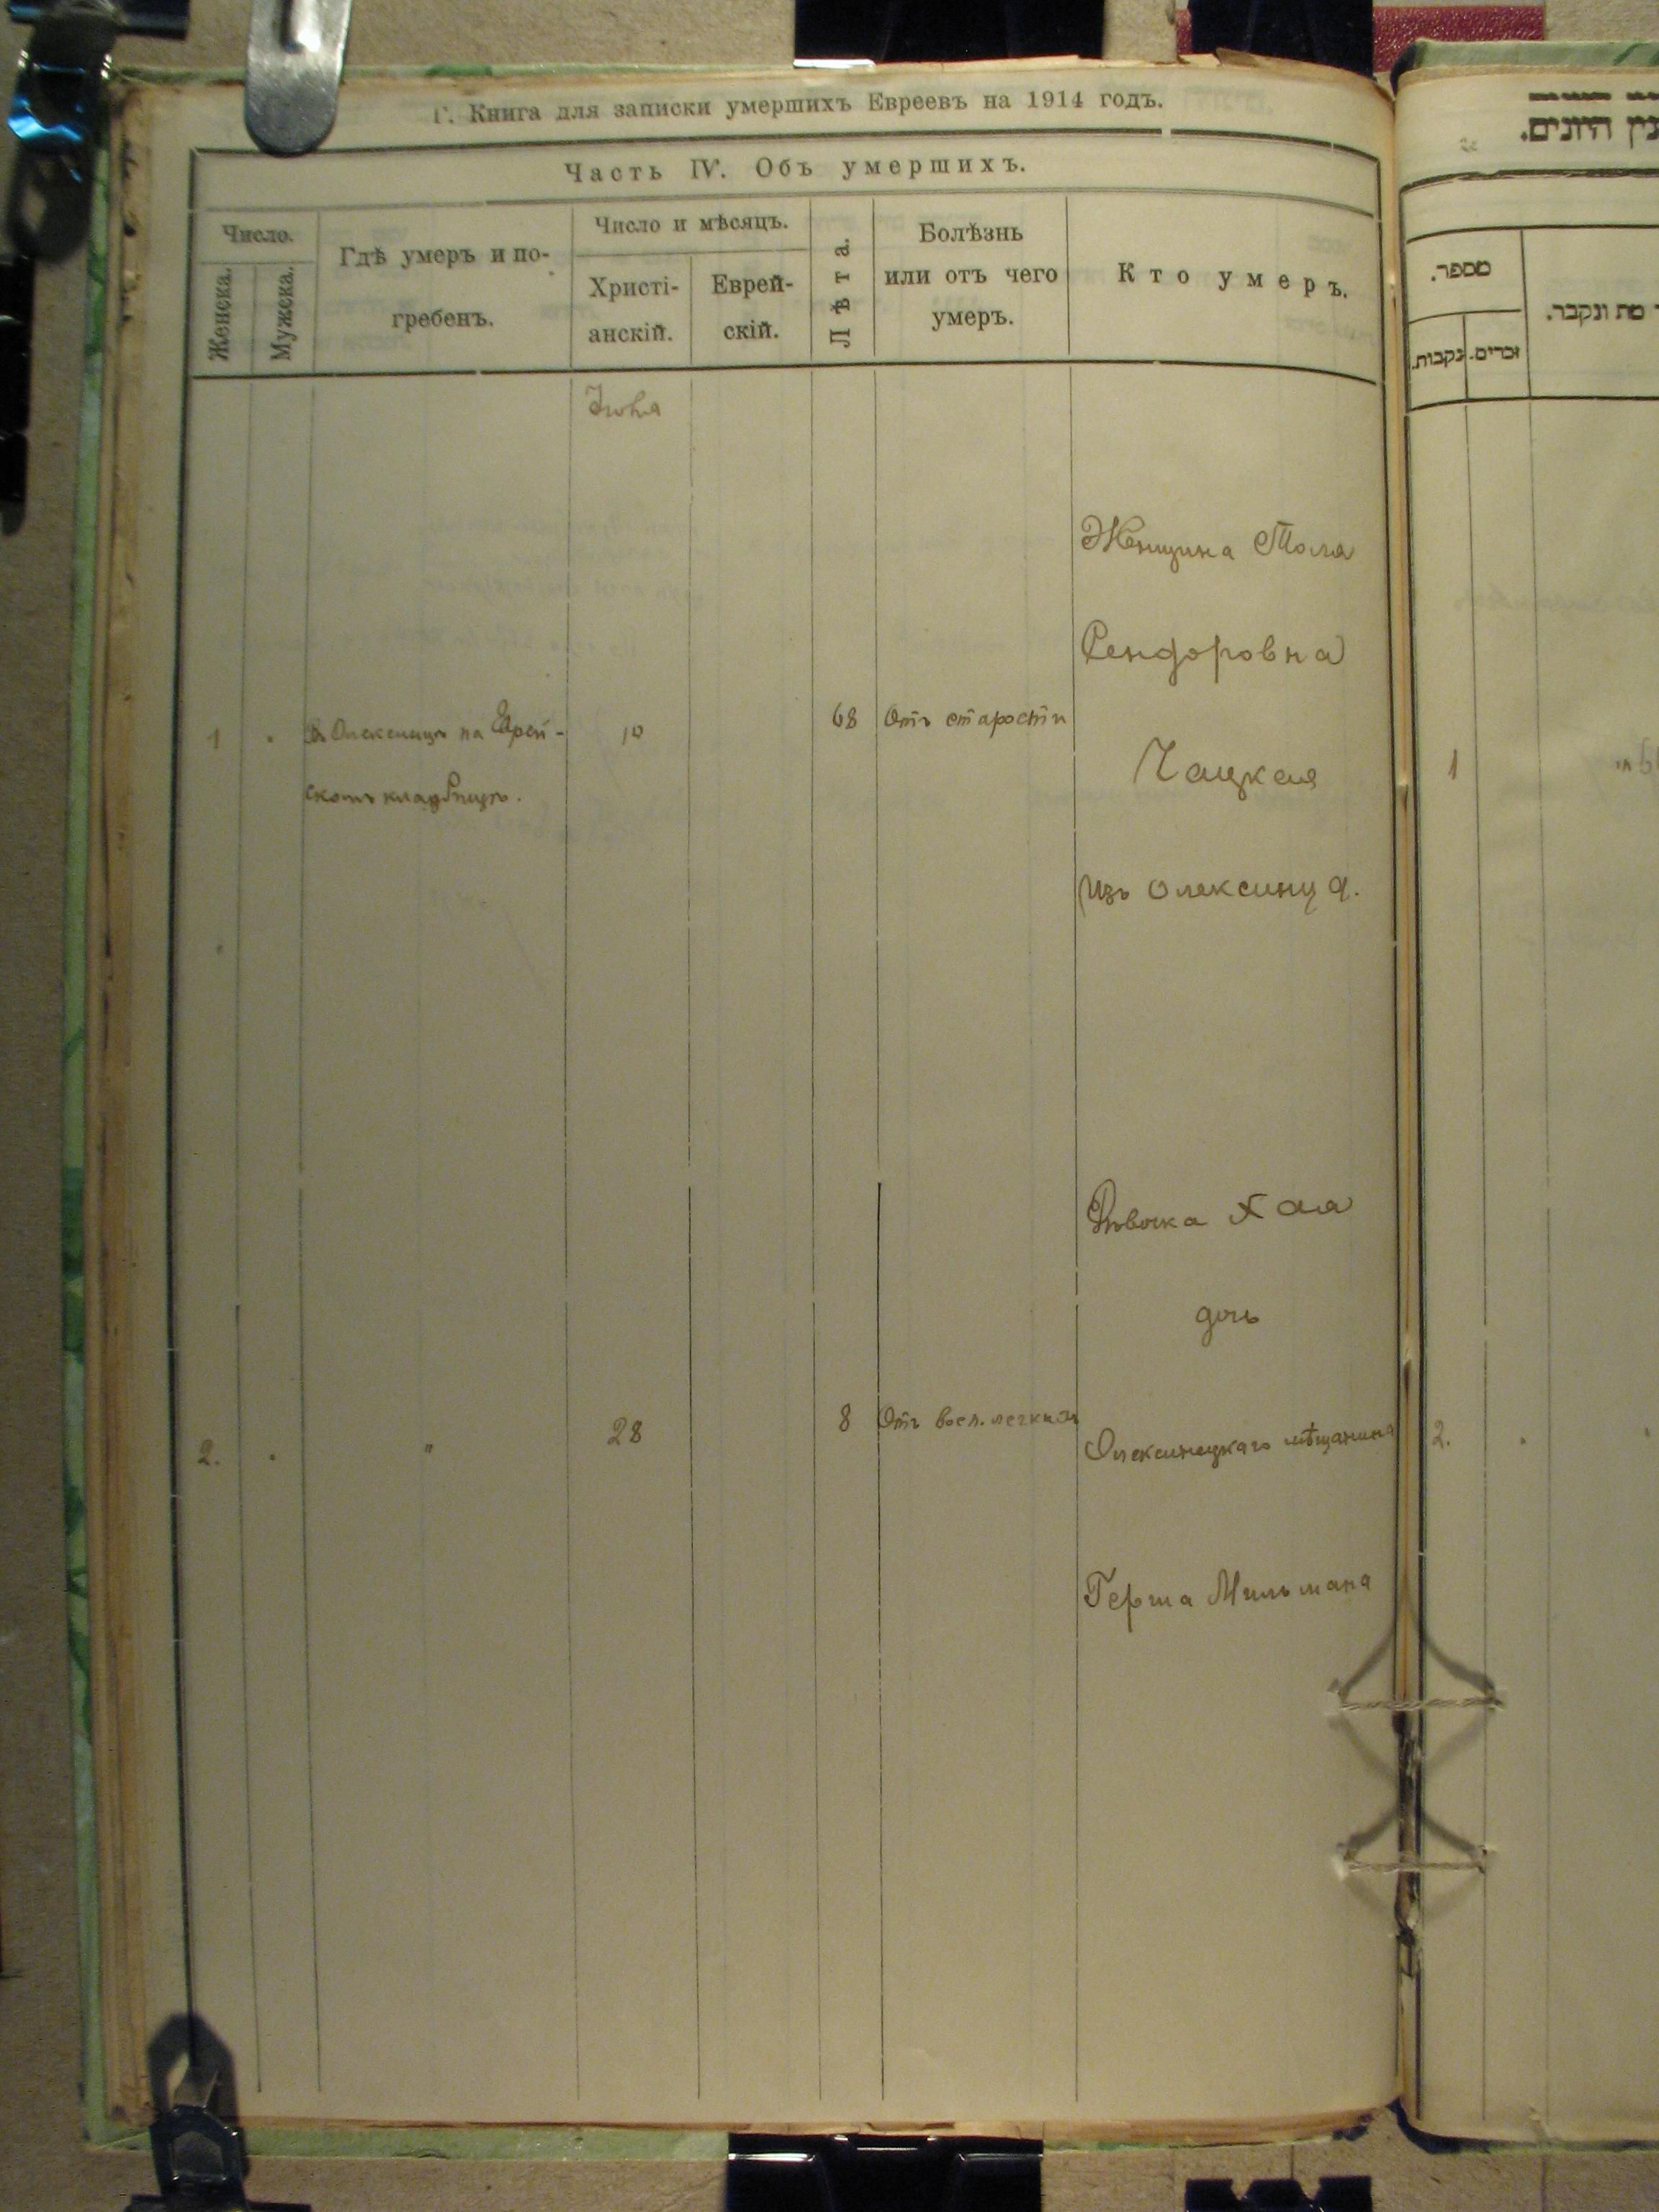 Г. Книга для записки умершихъ Евреевъ на 1914 годъ.
Часть IV. Объ умершихъ.
Число.
Женска.
Мужска.
Гдѣ умеръ и по-
гребенъ.
Число и мѣсяцъ.
Христі-
анскій.
Еврей-
скій.
Лѣта.
Болѣзнь
или отъ чего
умеръ.
Кто умеръ.
Женщина
1
на Еврей-
скомъ кладбищѣ.
10
68
Отъ старости
Чацкая
изъ Олексинца.
Дѣвочка Хая
дочь
2.
"
28
8
Отъ восп. легкихъ
Олексинецкаго мѣщанина
Герша Мильмана
היונים.
מספר.
נקבות.
זכרים.
מת ונקבר.
1
2.